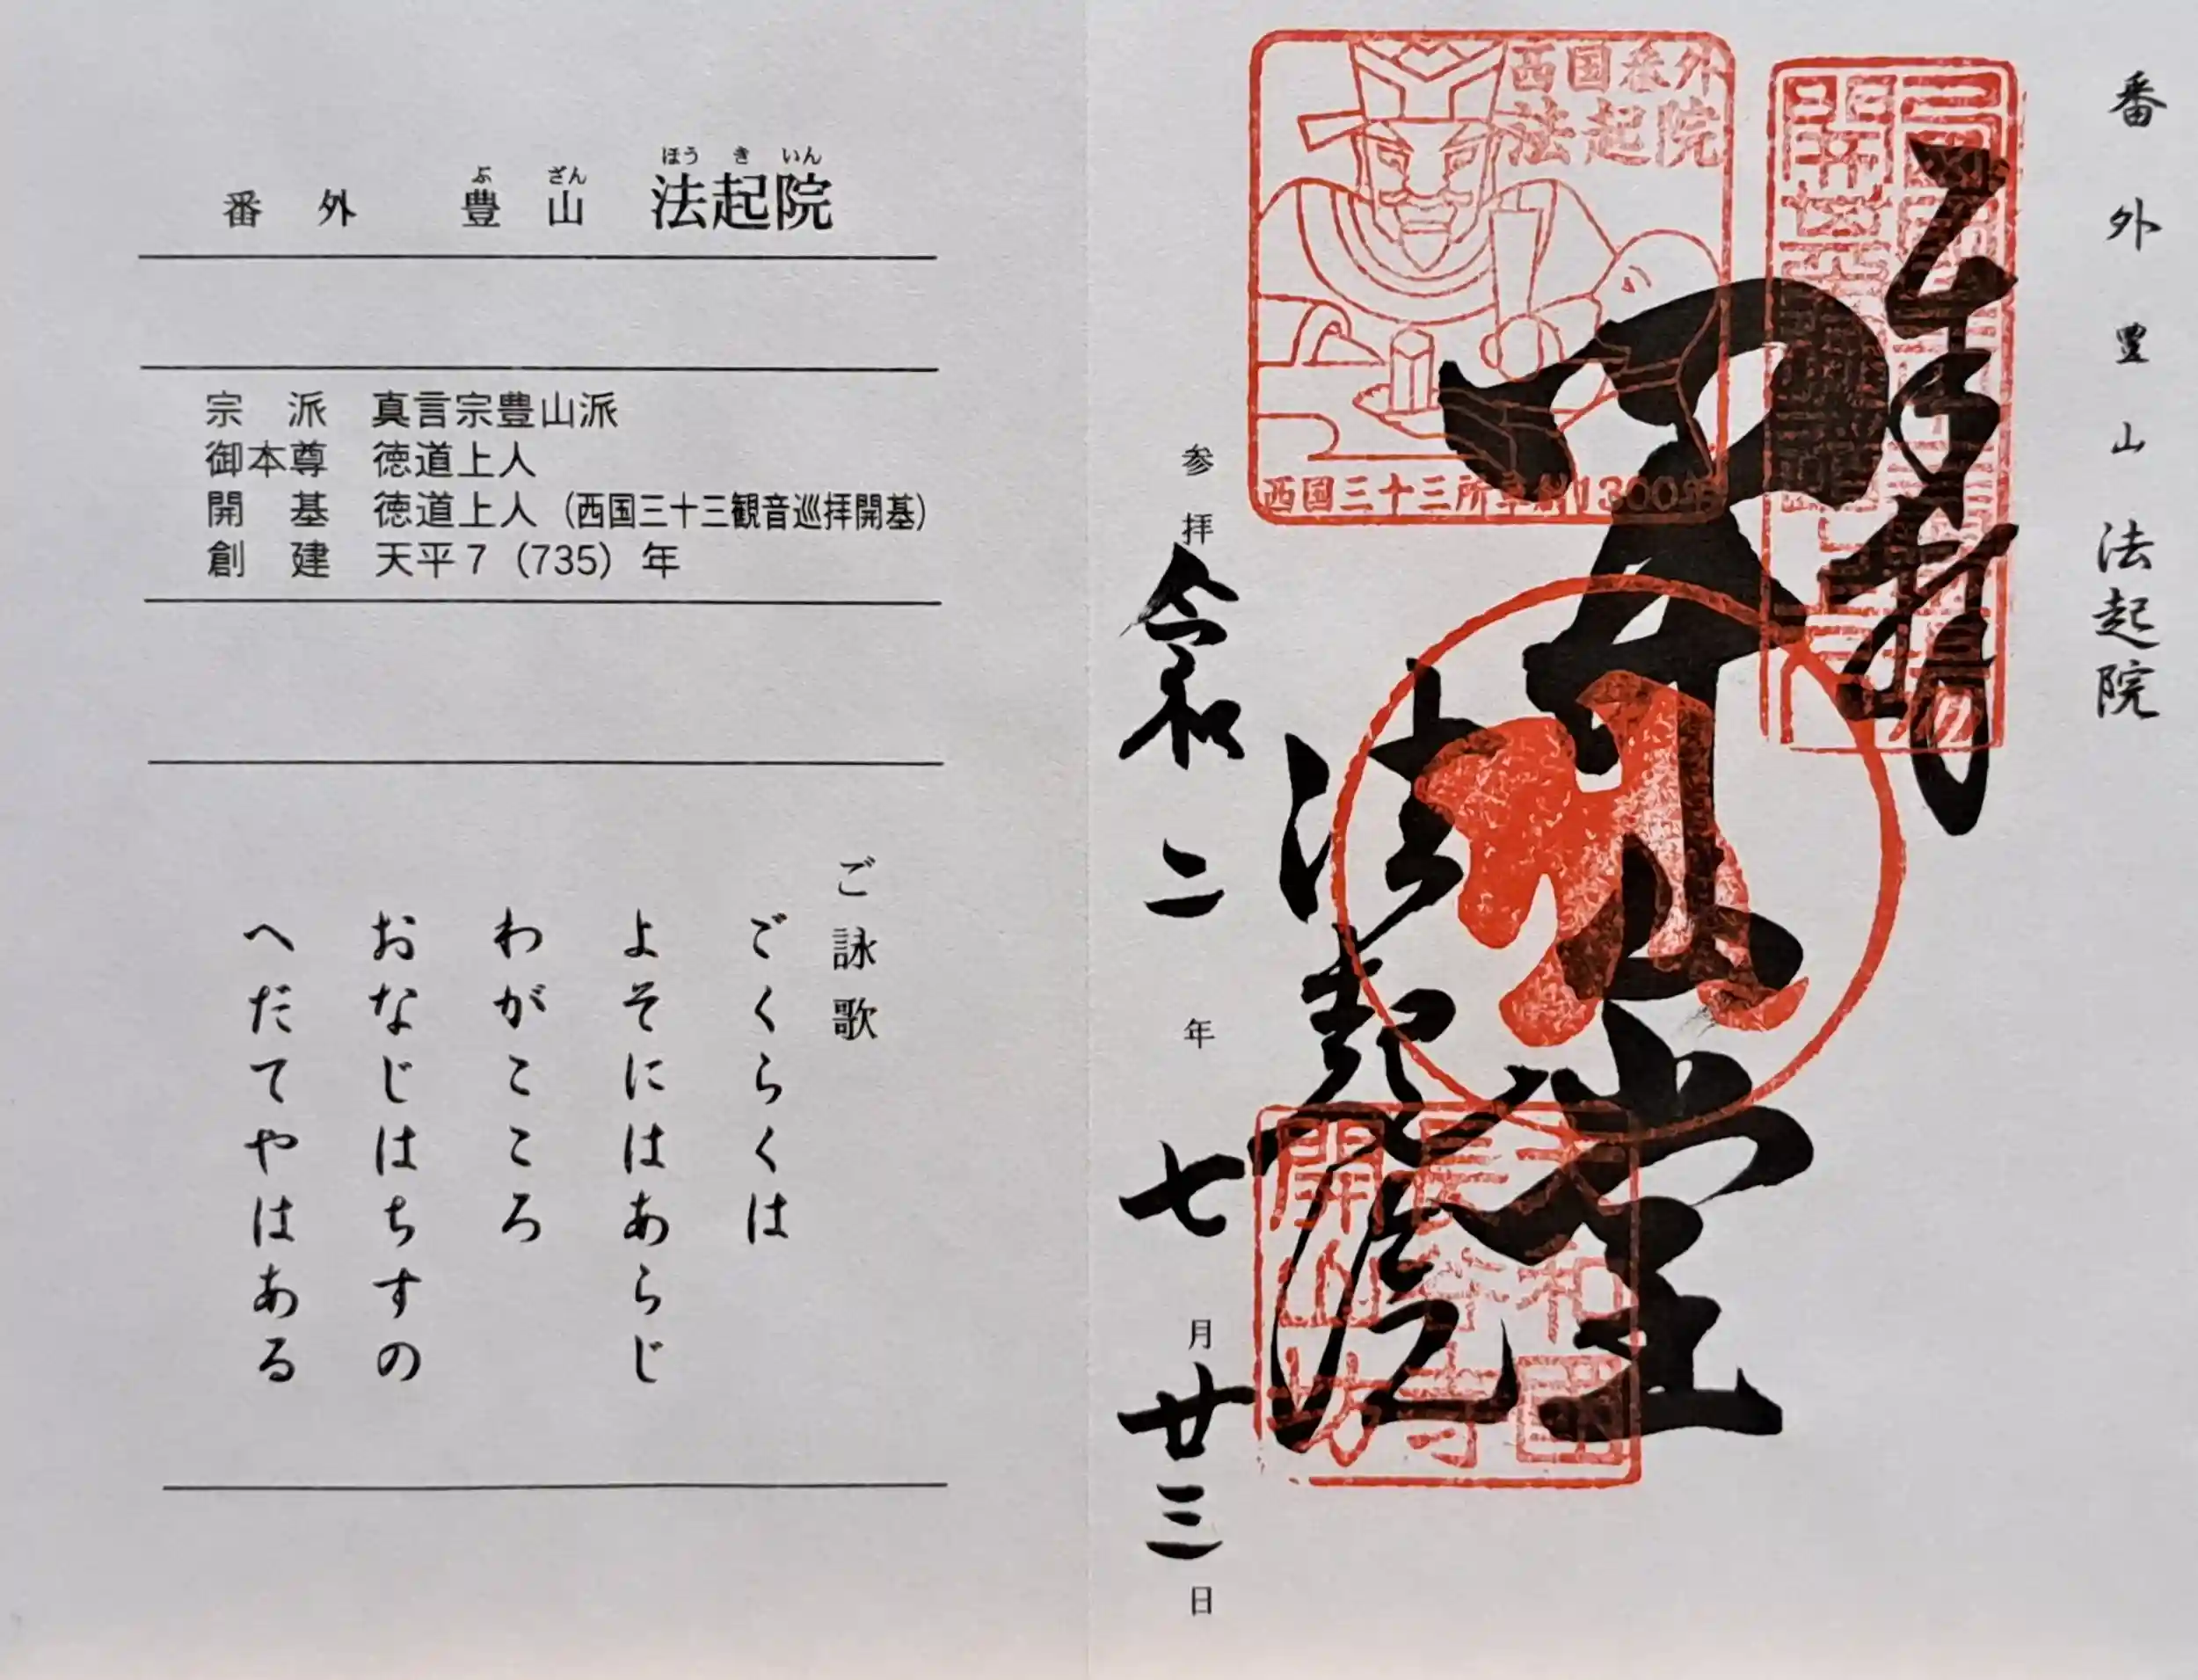 番外 豊山 法起院
ぶ ざん ほう き いん
宗派 真言宗豊山派
御本尊 徳道上人
開基 徳道上人(西国三十三観音巡拝開基)
創建 天平7(735)年
ご詠歌
ごくらくは
よそにはあらじ
わがこころ
おなじはちすの
へだてやはある
番外豊山 法起院
奉拝
開山堂
法起院
参拝 令和二年七月廿三日
西国番外
法起院
西国三十三所草創1300年
大和国
長谷寺
開山坊